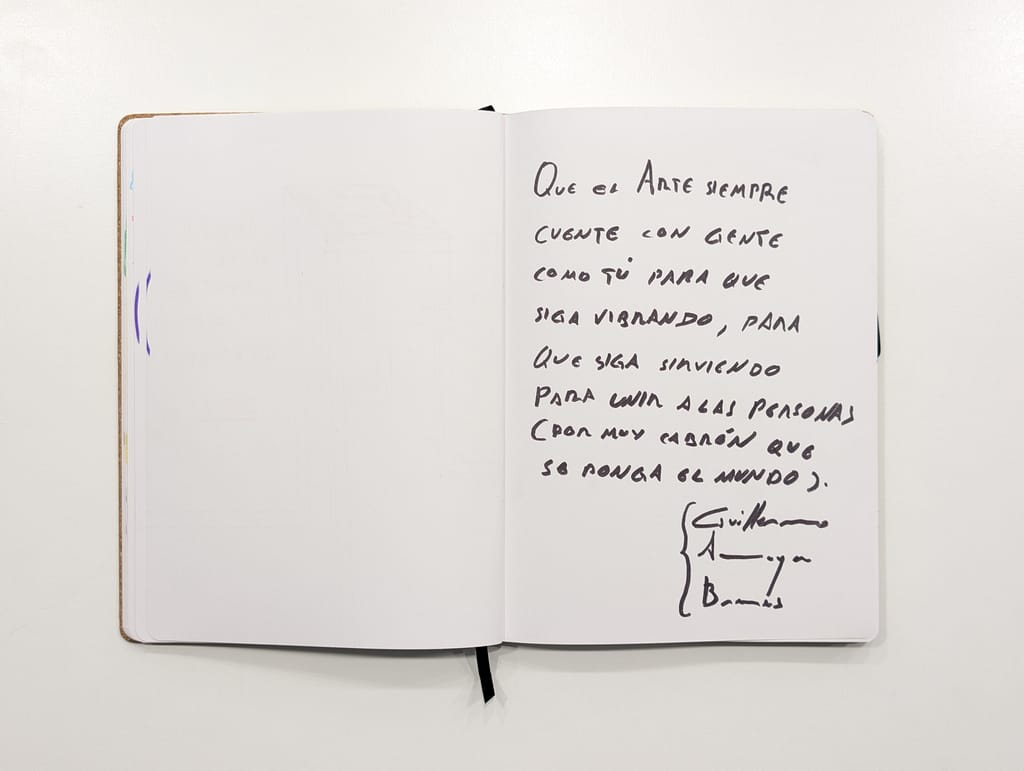 Que el Arte siempre
cuente con gente
como tú para que
siga vibrando, para
que siga sirviendo
para unir a las personas
(por muy cabrón que
se ponga el mundo).
Guillermo